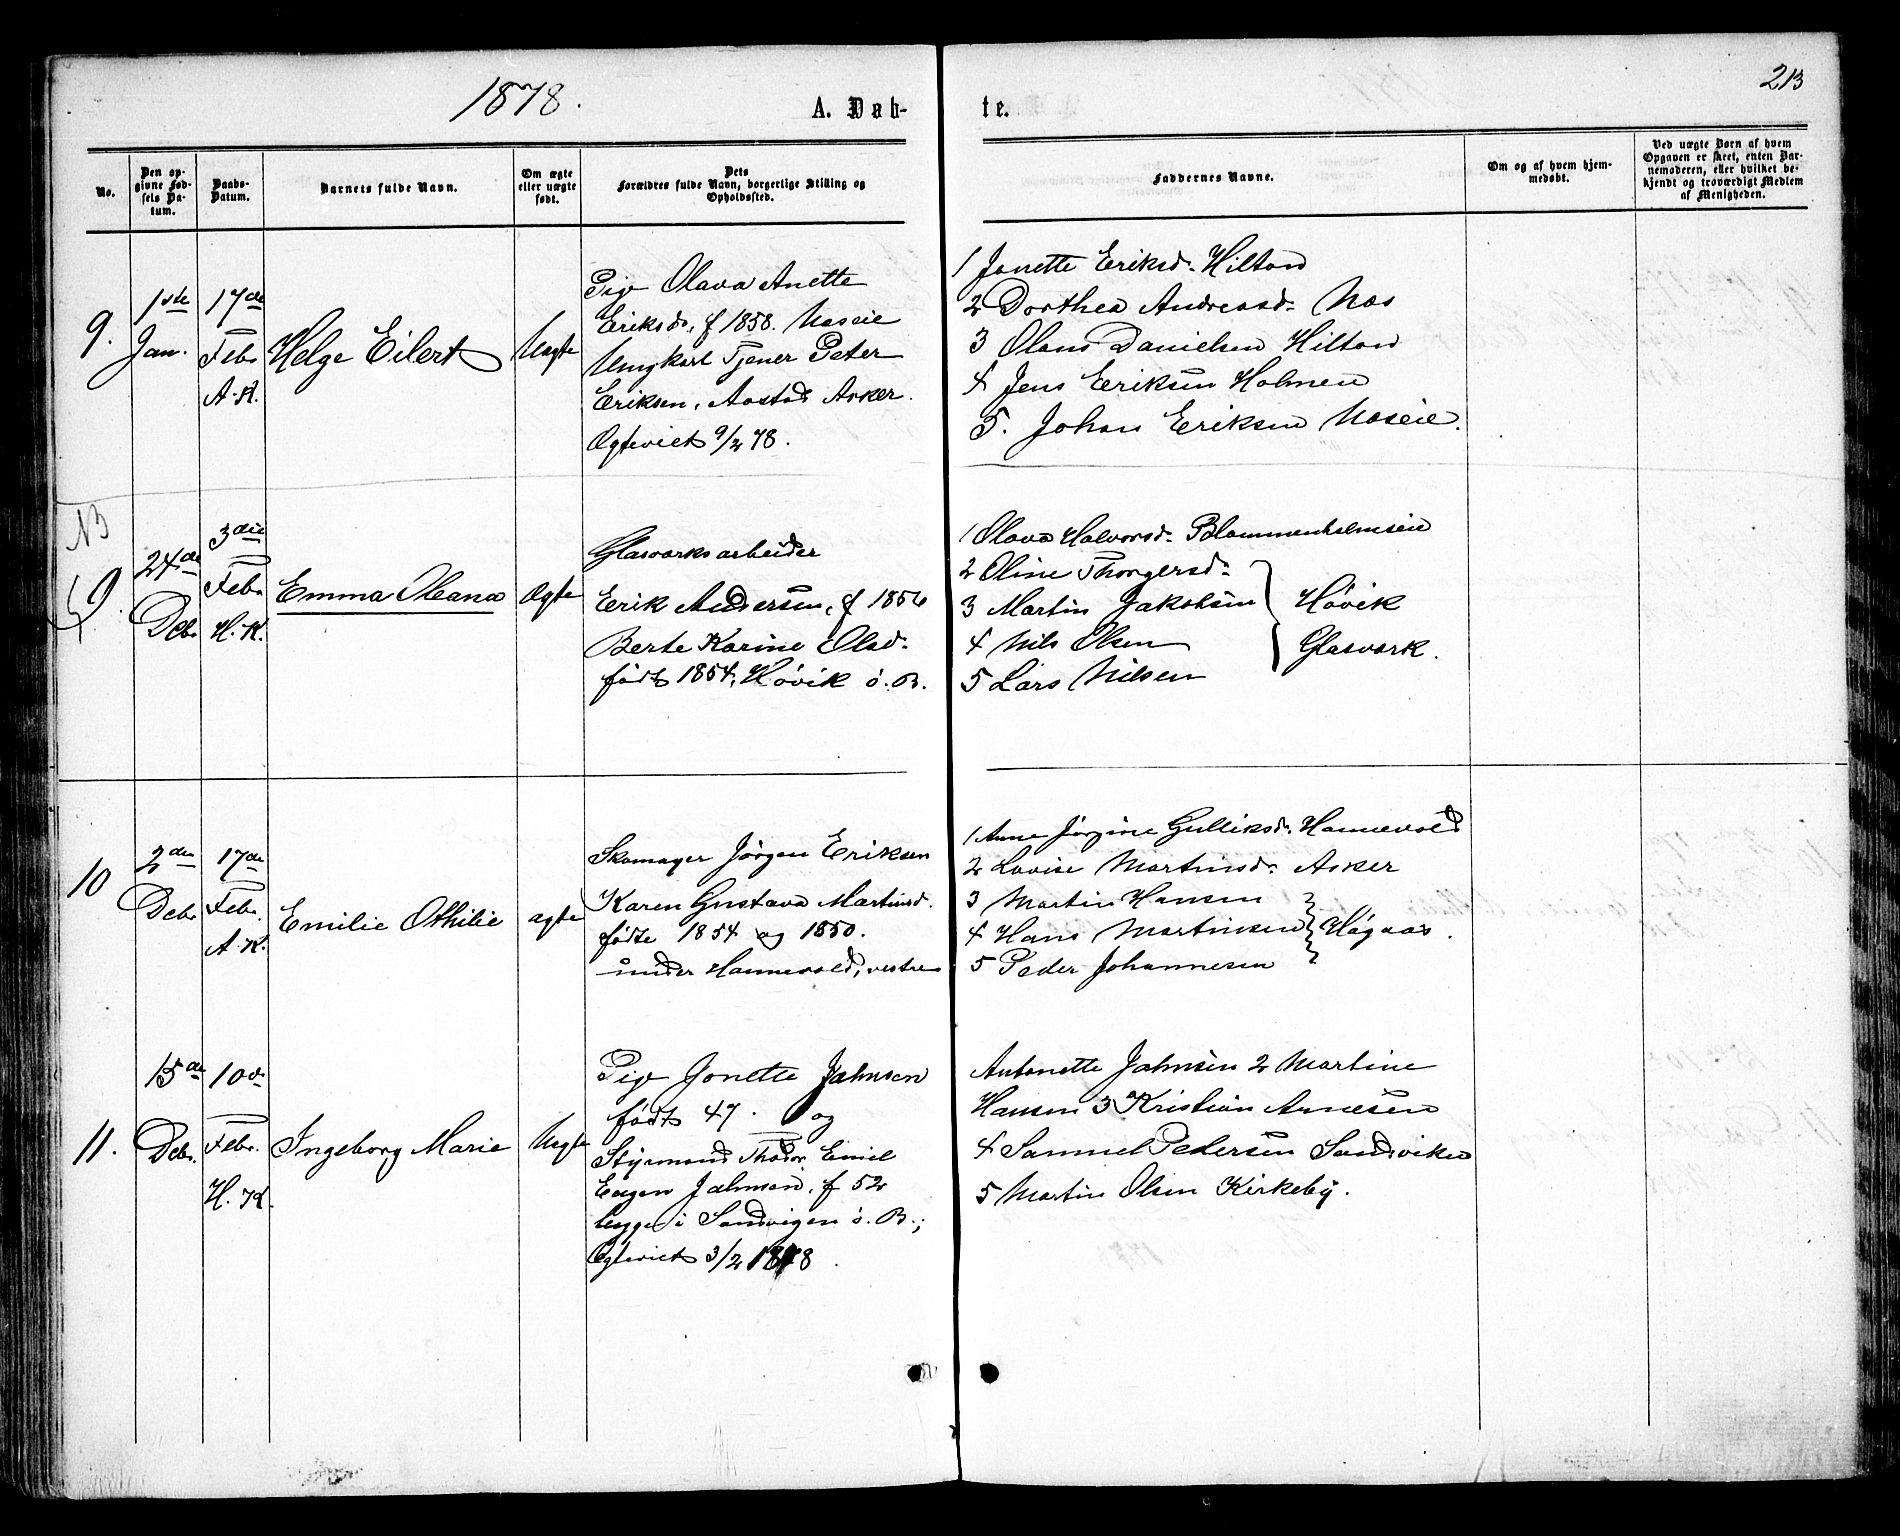 1878.
A. Døb-
te.
213
No.
Den op-
givne Fød-
sels Da-
tum.
Daabs-
Datum.
Barnets fulde Navn.
Om ægte
eller uægte
født.
Dets
Forældres fulde Navn, borgerlige Stilling og
Opholdssted.
Faddernes Navne.
Om og af hvem hjem-
medøbt.
Ved uægte Børn af hvem
Opgaven er skeet, enten Bar-
nemoderen, eller hvilket be-
kjendt og troværdigt Medlem
af Menigheden.
9.
1ste
Jan.
17de
Febr
A. K.
Helge Eilert
Uægte
Pige Olava Anette
Eriksd., f 1858. Næseie
Ungkarl Tjener Peter
Eriksen, Aastad Asker.
Ægteviet 9/2 78.
1 Jonette Eriksd. Hilton
2 Dorthea Andreasd. Næs
3 Olaus Danielsen Hilton
4 Jens Eriksen Holmen
5. Johan Eriksen Næseie.
NB
9.
24de
Debr
3die
Febr
H. K.
Emma Oleana
Ægte
Glasværksarbeider
Erik Andersen, f 1856
Berte Karine Olsd.
født 1854, Høvik ö. B.
1 Olava Halvorsd. Blommenholmseie
2 Oline Thorgersd.
3 Martin Jakobsen
4 Nils Olsen
5 Lars Nilsen
Høvik
Glasværk.
10
2den
Debr
17de
Febr.
A. K.
Emilie Othilie
ægte
Skomager Jörgen Eriksen
Karen Gustava Martinsd.
fødte 1854 og 1850.
under Hannevold, vestre
1 Anne Jørgine Gulliksd. Hannevold
2 Lovise Martinsd. Asker
3 Martin Hansen
4 Hans Martinsen
5 Peder Johannesen
Høgaas.
11.
15de
Debr.
10de
Febr.
H. K.
Ingeborg Marie
Uægte
Pige Jonette Jahnsen
født 47. og
Styrmand Thodor Emil
Eugen Jahnsen, f 52
begge i Sandvigen ö. B.;
Ægteviet 3/2 1878.
Antonette Jahnsen 2 Martine
Hansen 3 Kristian Arnesen
4 Samuel Pedersen Sandviken
5 Martin Olsen Kirkeby.